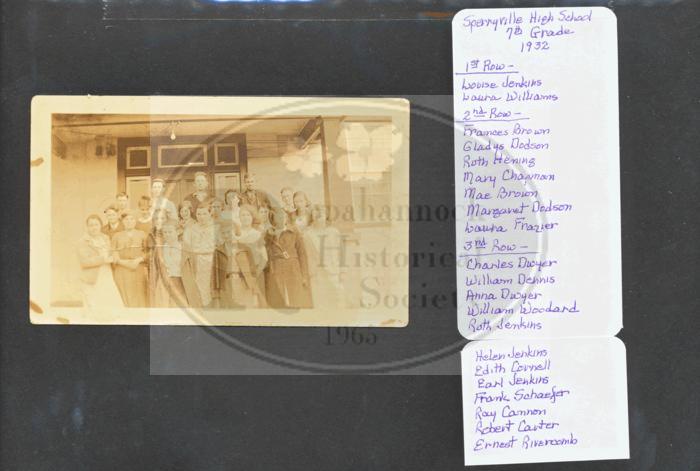 Sperryville High School
7th Grade
1932
1st Row -
Louise Jenkins
Laura Williams
2nd Row -
Frances Brown
Gladys Dodson
Ruth Hening
Mary Chapman
Mae Brown
Margaret Dodson
Laura Frazier
3rd Row -
Charles Dwyer
William Dennis
Anna Dwyer
William Woodard
Ruth Jenkins
Helen Jenkins
Edith Cornell
Earl Jenkins
Frank Schaefer
Ray Cannon
Robert Carter
Ernest Rivercomb
Rappahannock
Historical
Society
1965